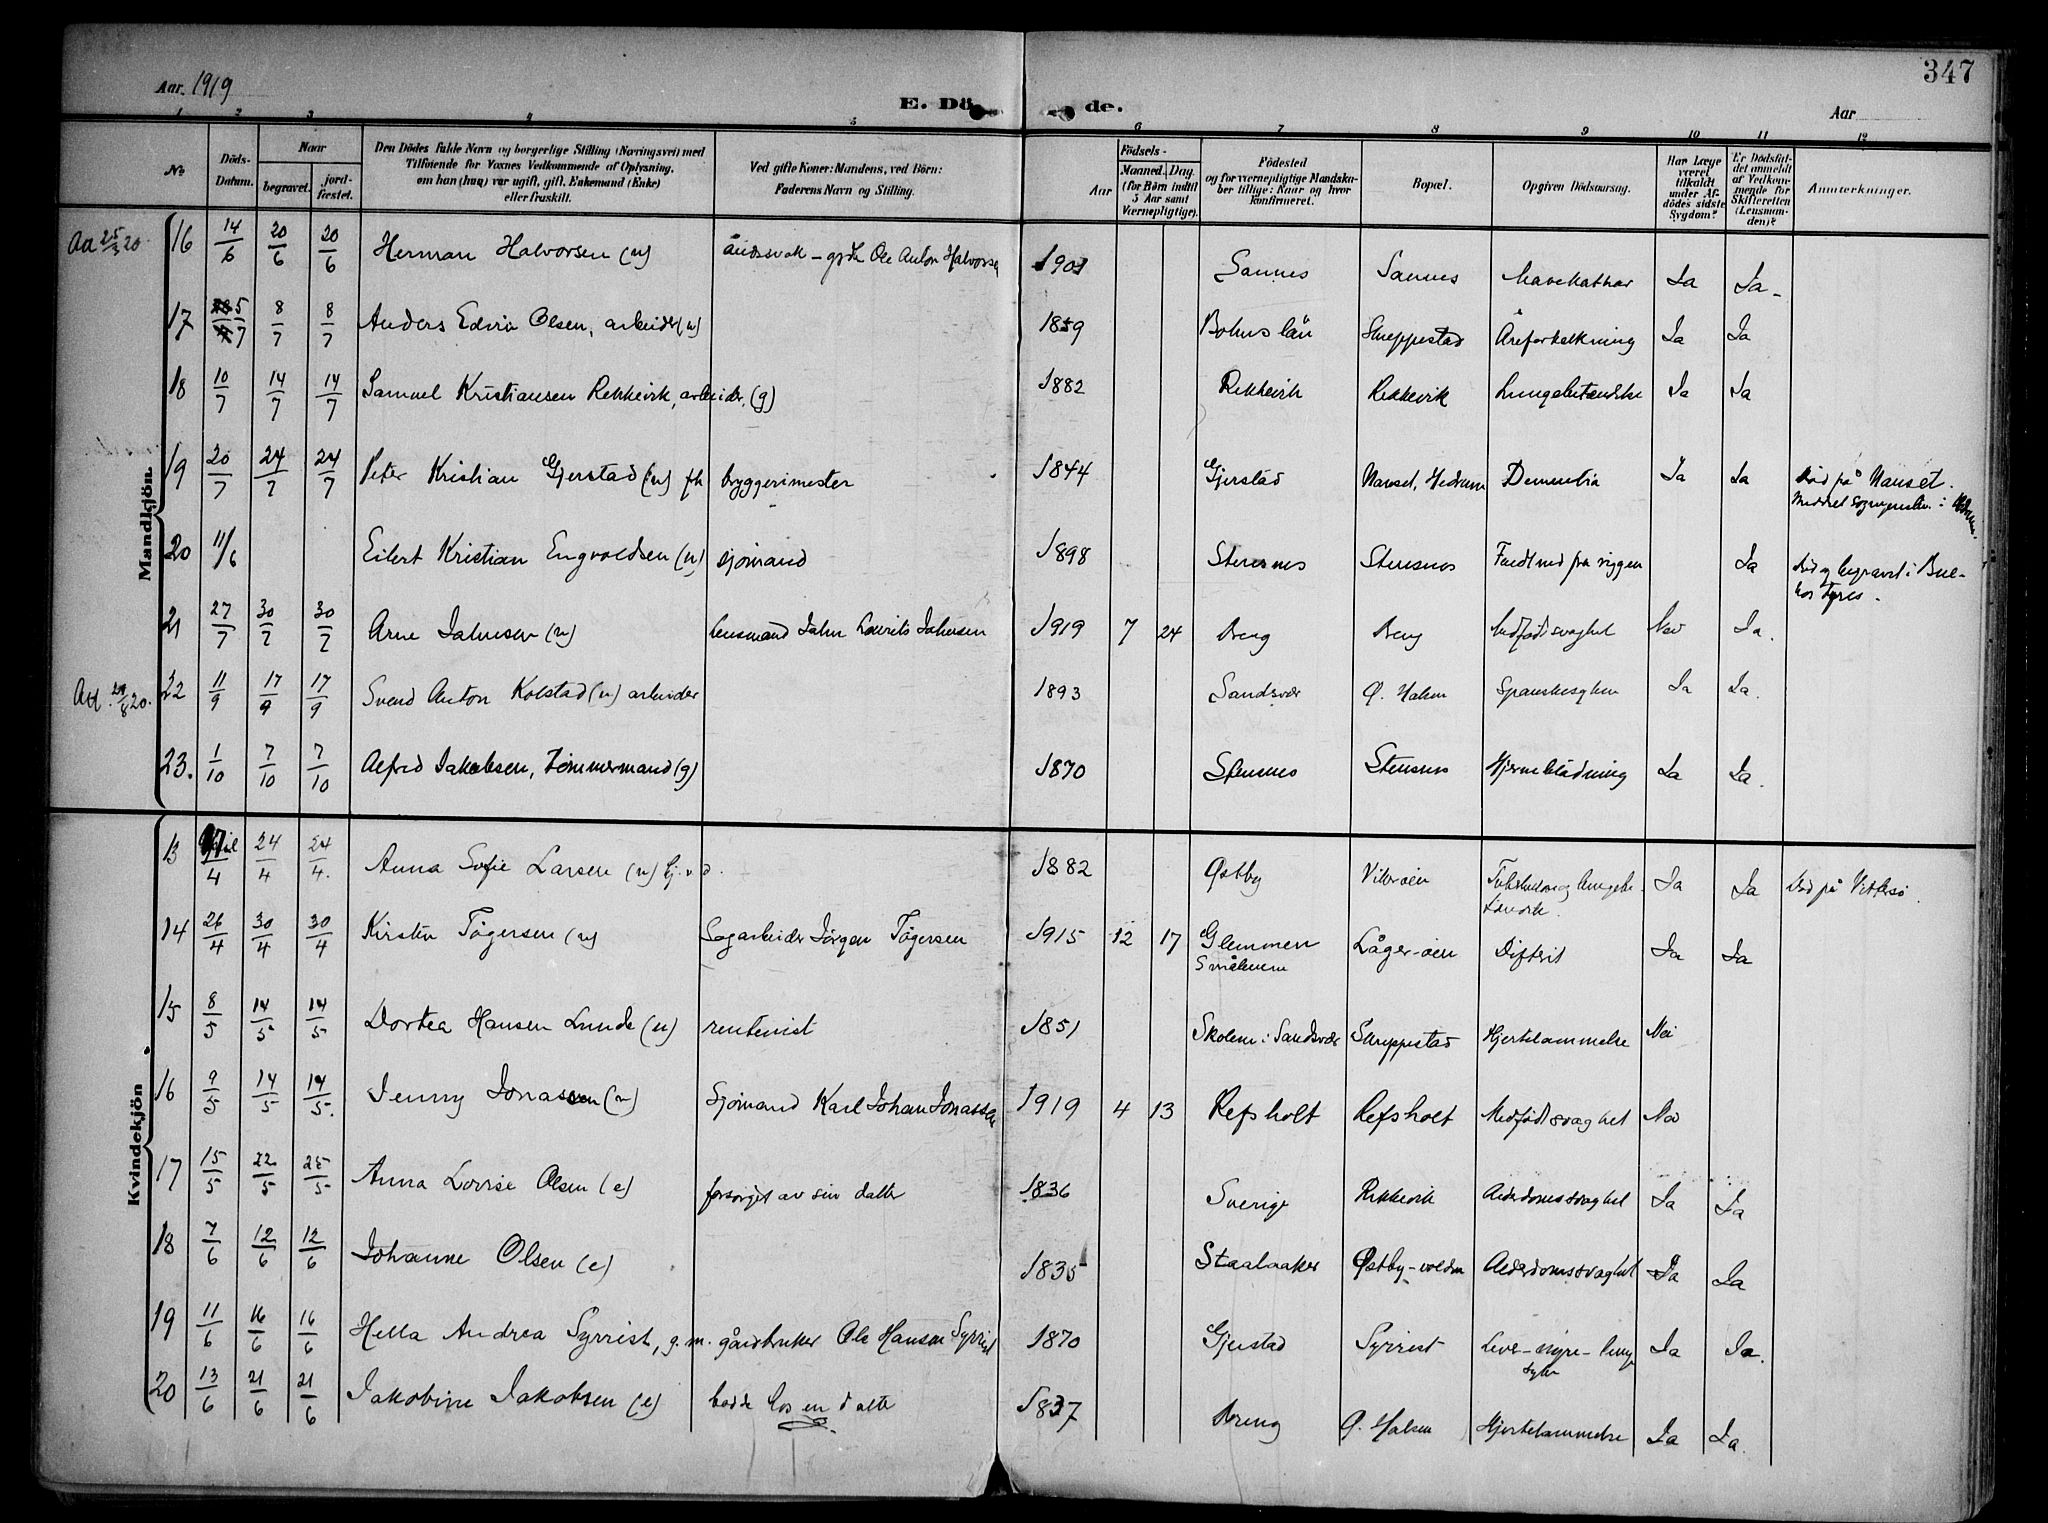 Aar. 1919
E. Dö de.
Aar
347
1 2 3 4 5 6 7 8 9 10 11 12
No
Döds-Datum.
Naar
begravet.
jord-fæstet.
Den Dödes fulde Navn og borgerlige Stilling (Næringsvei) med
Tilföiende for Voxnes Vedkommende af Oplysning,
om han (hun) var ugift, gift, Enkemand (Enke)
eller fraskilt.
Ved gifte Koner: Mandens, ved Börn:
Faderens Navn og Stilling.
Födsels-
Aar
Maaned. Dag.
(for Börn indtil
5 Aar samt
Værnepligtige).
Födested
og for værnepligtige Mandska-
ber tillige: Naar og hvor
konfirmeret.
Bopæl.
Opgiven Dödsaarsag.
Har Læge
været
tilkaldt
under Af-
dödes sidste
Sygdom?
Er Dödsfal-
det anmeldt
af Vedkom-
mende for
Skifteretten
(Lensman-
den)?
Anmærkninger.
Mandkjön
16 14/6 20/6 20/6 Herman Halvorsen (u) åndssvak - Ole Anton Halvorsen 1901 Sannes Sannes Mavekathar Ja Ja
17 5/7 8/7 8/7 Anders Edvin Olsen, arbeider (u) 1859 Bohus län Skreppestad Åreforkalkning Ja Ja
18 10/7 14/7 14/7 Samuel Kristiansen Rekkevik, arbeider, (g) 1882 Rekkevik Rekkevik Lungebetændelse Ja Ja
19 20/7 24/7 24/7 Peter Kristian Gjerstad (u) fh bryggerimester 1844 Gjerstad Nanset, Hedrum Dementia Ja Ja Död på Nanset.
Meddelt sogneprsten i Hedrum.
20 11/6 Eilert Kristian Engvoldsen (u) sjömand 1898 Stensnes Stensnes Faldt ned fra riggen Ja Död og begravet i Bue-
nos Ayres.
21 27/7 30/7 30/7 Arne Jahnsen (u) lensmand Jahn Laurits Jahnsen 1919 7 24 Breng Breng Medfødt svaghet Nei Ja.
22 11/9 17/9 17/9 Svend Anton Kolstad (u) arbeider 1893 Sandsvær Ø. Halsen Spanskesyken Ja Ja.
23. 1/10 7/10 7/10 Alfred Jakobsen, Tömmermand (g) 1870 Stensnes Stensnes Hjerneblödning Ja Ja.
Kvindekjön
13 24/4 24/4. Anna Sofie Larsen (u) 1882 Østby Ja Ja Död på Vittersö.
14 26/4 30/4 30/4 Kirsten Tögersen (u) Sagarbeider Jörgen Tögersen 1915 12 17 Glemmen
Smålenene Lågen-øen Difterit Ja Ja
15 8/5 14/5 14/5 Dortea Hansen Lunde (u) rentenist 1851 Skolem i Sandsvær Skreppestad Hjertelammelse Nei
16 9/5 14/5 14/5. Jenny Jonassen (u) Sjömand Karl Johan Jonassen 1919 4 13 Refsholt Refsholt Medfødt svaghet Nei
17 15/5 22/5 25/5 Anna Lovise Olsen (e) forsörget av sin datter 1836 Sverige Rekkevik Alderdomssvaghet Ja Ja
18 7/6 12/6 12/6 Johanne Olsen (e) 1835 Staalaaker Østby-volden Alderdomssvaghet Ja Ja
19 11/6 16/6 16/6 Hella Andrea Syrrist, g. m. gårdbruker Ole Hansen Syrrist 1870 Gjerstad Syrrist Lever-nyre-lunge
syke Ja Ja.
20 13/6 21/6 21/6 Jakobine Jakobsen (e) bodde hos en datter 1837 Breng Ø. Halsen Hjertelammelse Ja Ja.